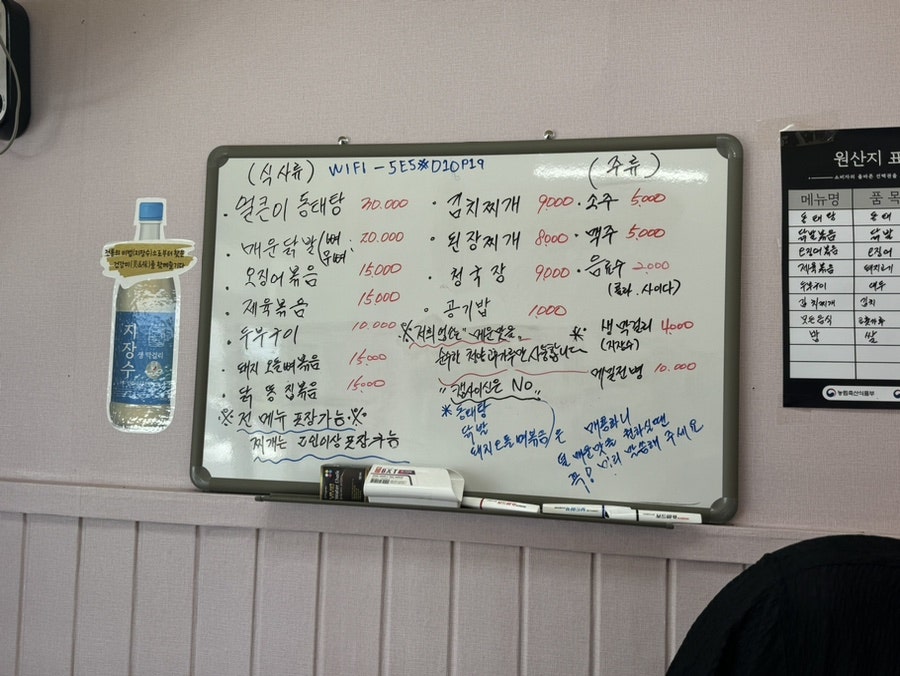 (식사류) WIFI - 5E5※D10P19 (주류)
얼큰이 동태탕 30.000
매운닭발(뼈. 20.000
오징어볶음 15,000
제육볶음 15,000
두부구이 10.000
돼지오돌뼈볶음 15.000
닭똥집볶음 15.000
※전 메뉴 포장가능※
찌개는 2인이상 포장가능
김치찌개 9000
된장찌개 8000
청국장 9000
공기밥 1000
※저희업소는 매운맛을
순수한 청양고추가루만 사용합니다
"캡사이신은 NO"
※동태탕
닭발
돼지오돌뼈볶음은
매콤하니
덜 매운맛을 원하시면
꼭! 미리 말씀해 주세요
소주 5,000
맥주 5,000
음료수 2.000
(콜라.사이다)
※ 생막걸리 4,000
(지장수)
메밀전병 10.000
지장수
생막걸리
원산지 표
메뉴명 품목
동태탕 동태
닭발볶음 닭발
오징어볶음 오징어
제육볶음 돼지고기
두부구이
김치찌개 김치
밥 쌀
농림축산식품부
BXT
보드마카